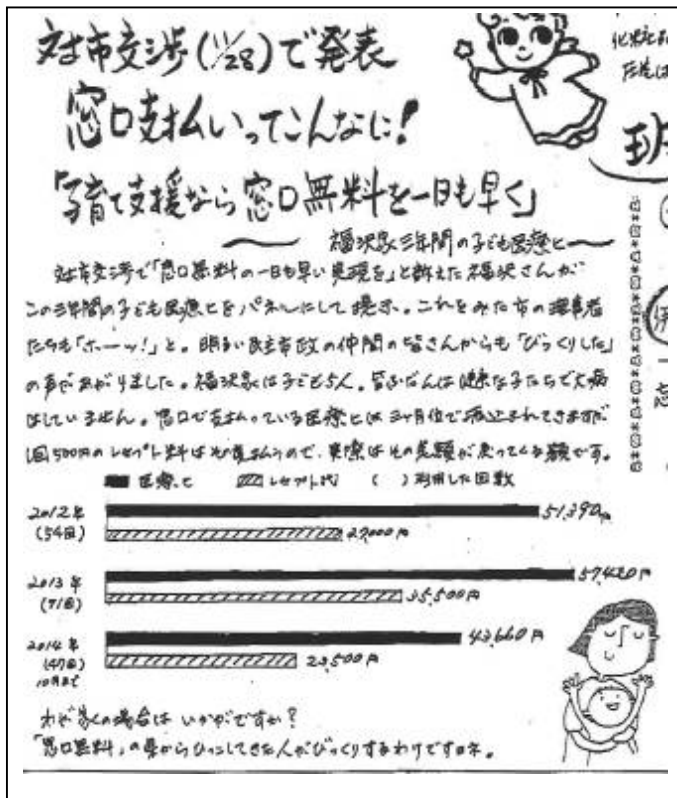 対市交渉(11/28)で発表
窓口支払いってこんなに!
「子育て支援なら窓口無料を一日も早く」
福沢家三年間の子ども医療ヒ
対市交渉で「窓口無料の一日も早い実現を」と訴えた福沢さんが
この三年間の子ども医療ヒをパネルにして提示。これをみた市の理事者
たちも「ホーッ!」と。明るい民主市政の仲間の皆さんからも「びっくりした」
の声があがりました。福沢家は子ども5人。皆ふだんは健康な子たちで大病
はしていません。窓口で支払っている医療ヒは三ヶ月位で還付されてきますが
1回500円のレセプト料はその都度払うので、実際はその差額が戻ってくる額です。
医療ヒ レセプト代 ( )利用した回数
2012年
(54回)
51,390円
27,000円
2013年
(71回)
57,420円
35,500円
2014年
(47回)
10月まで
43,660円
23,500円
わが家の場合はいかがですか?
「窓口無料」の県からひっこしてきた人がびっくりするわけですネ。
化粧
班